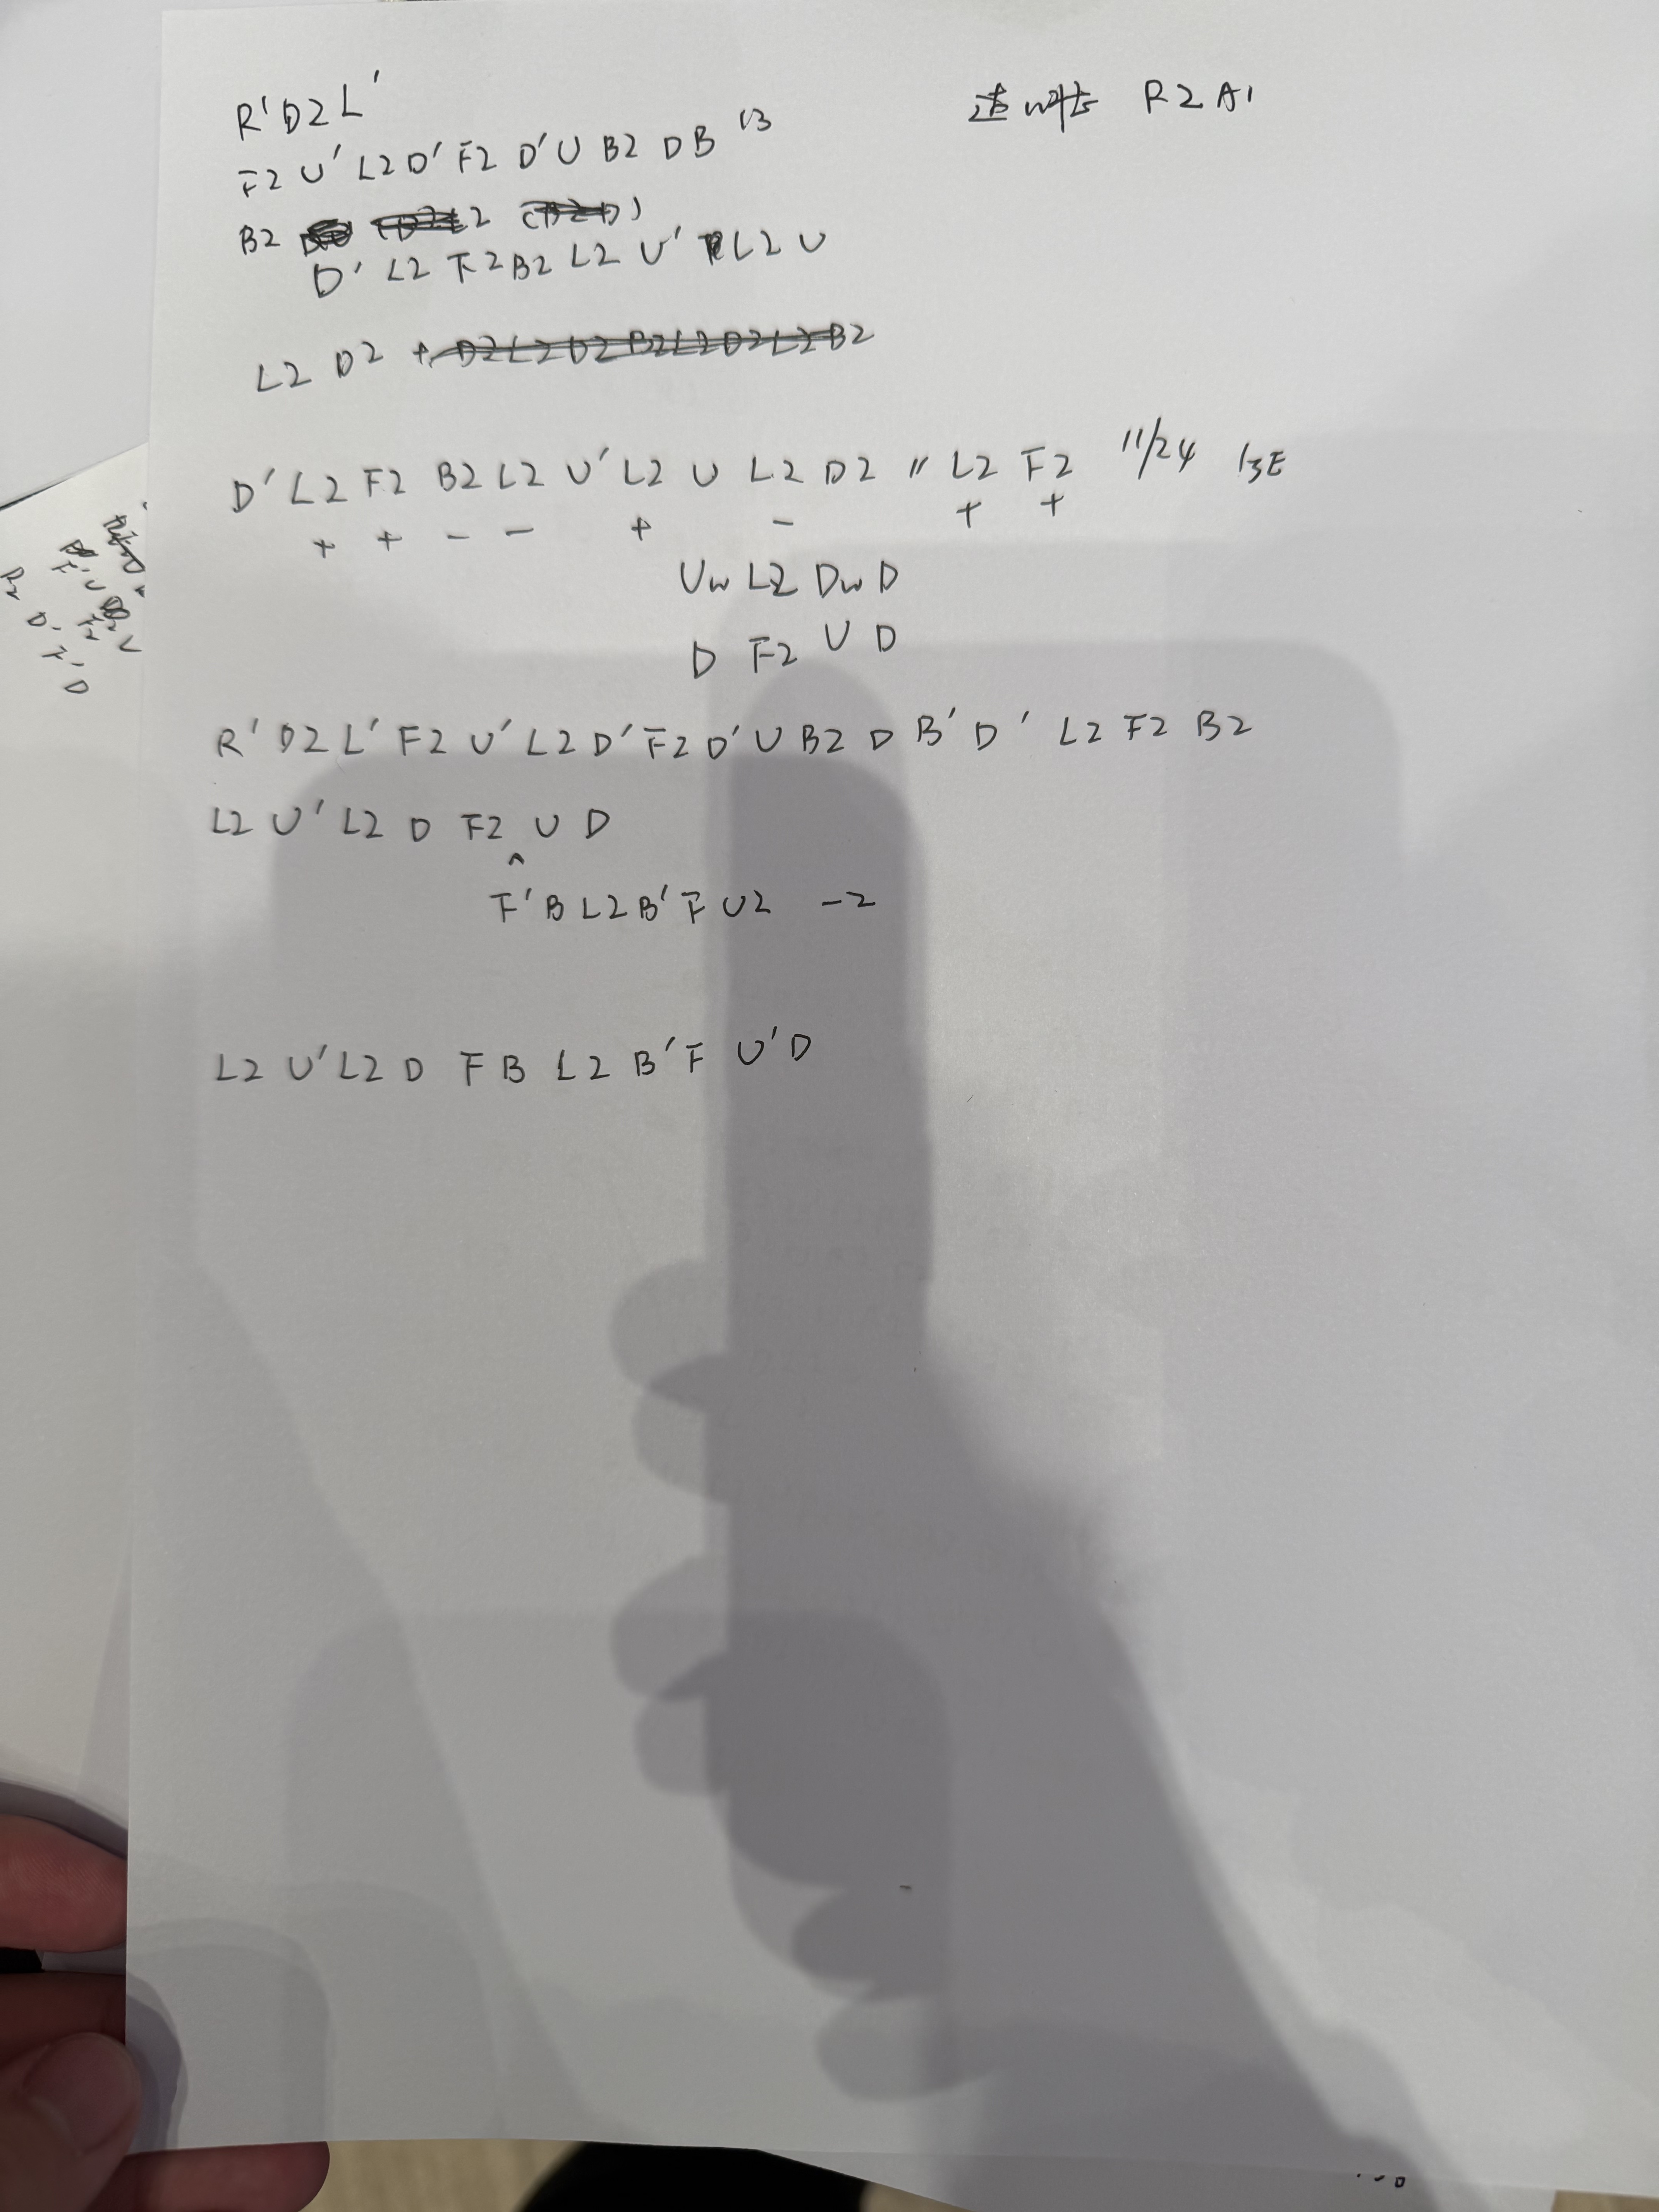 R' D2 L'
R2 A1
F2 U' L2 D' F2 D' U B2 D B 13
B2
D' L2 F2 B2 L2 U' L2 U
L2 D2 + D2 L2 D2 B2 L2 D2 L2 B2
D' L2 F2 B2 L2 U' L2 U L2 D2 " L2 F2 11/24 13E
+ + - - + - + +
Uw L2 Dw D
D F2 U D
R' D2 L' F2 U' L2 D' F2 D' U B2 D B' D' L2 F2 B2
L2 U' L2 D F2 U D
^
F' B L2 B' F U2 -2
L2 U' L2 D F B L2 B' F U' D